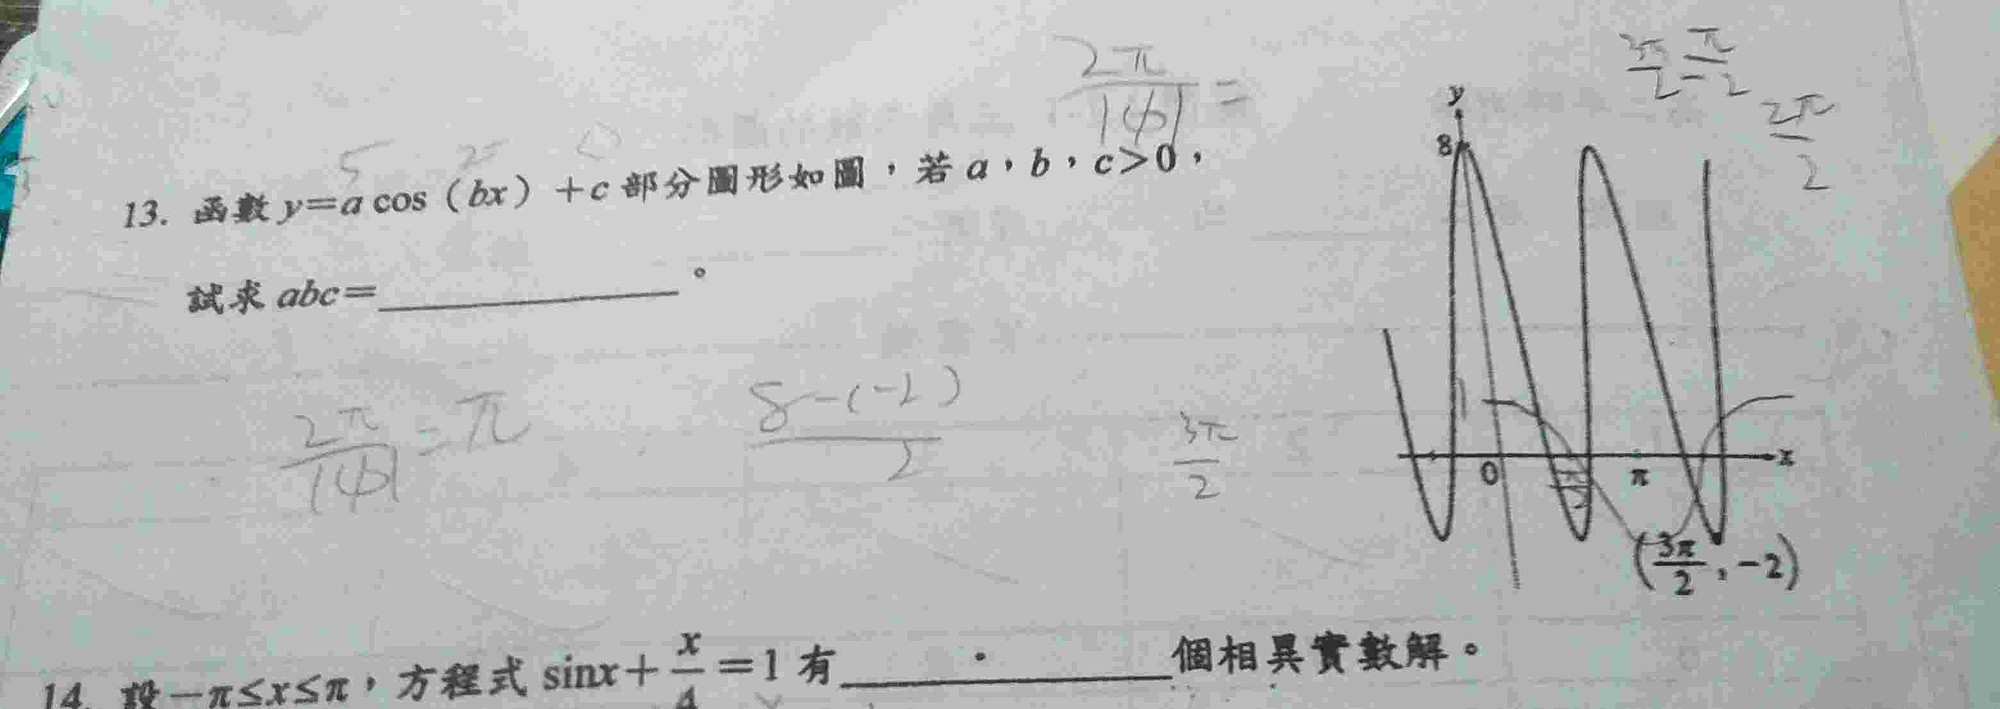 2π/|b| =
3π/2 - π/2
2π/2
5
13. 函數 y=a cos（bx）+c 部分圖形如圖，若 a，b，c>0，
試求 abc=＿＿＿＿＿＿。
y
8
0
π/2
π
x
(3π/2, -2)
2π/|b| = π
8-(-2)/2
3π/2
14. 設 -π≤x≤π，方程式 sinx+x/4=1 有＿＿＿＿＿＿個相異實數解。